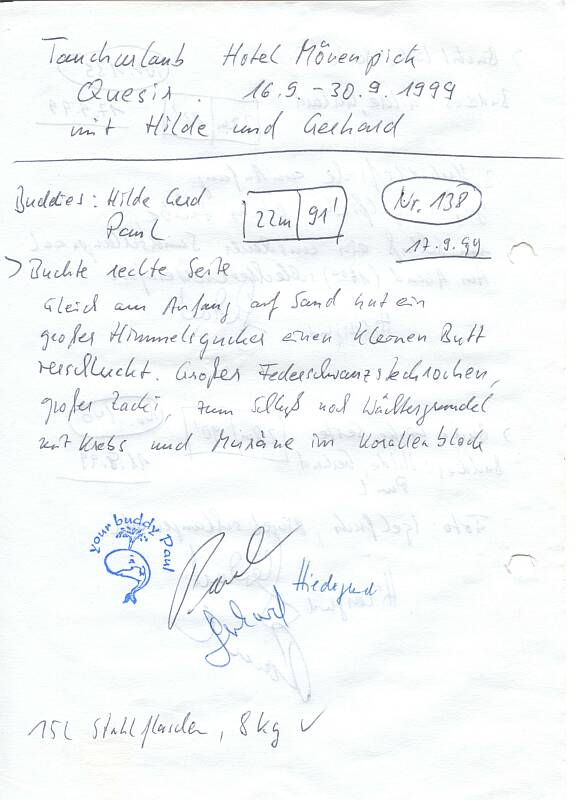 Taucherlaub Hotel Mövenpick
Quesir. 16.9. - 30.9. 1999
mit Hilde und Gerhard
Buddies: Hilde Gerd
Paul
22m 91'
Nr. 138
17.9.99
> Buchte rechte Seite
Gleich am Anfang auf Sand hat ein
großer Himmelsgucker einen kleinen Butt
verschluckt. Großer Federschwanzstechrochen,
großer Zacki, zum Schluß noch Wächtergrundel
mit Krebs und Muräne im Korallenblock
your buddy Paul
Paul
Gerhard
Hildegund
15L Stahlflaschen, 8kg ✓